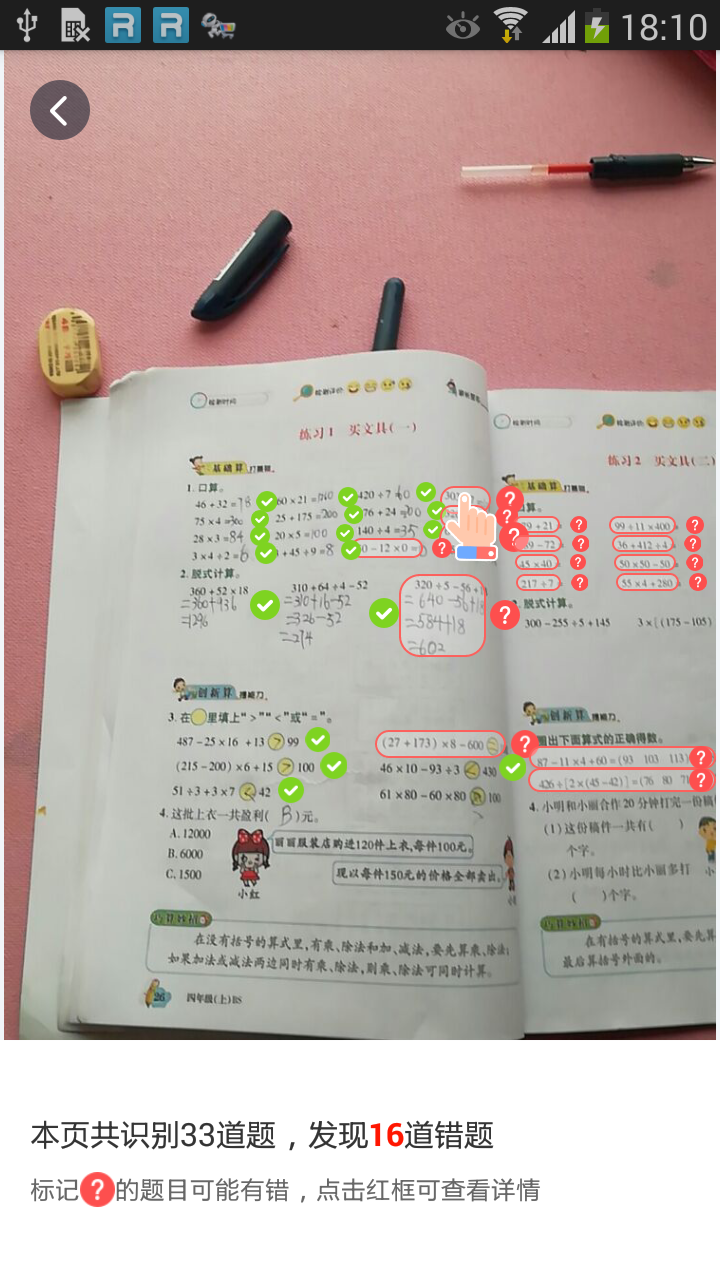 18:10
检测时间
检测评价
练习1 买文具(一)
基础算 打基础。
1. 口算。
46+32=78 60×21= 420÷7=60
75×4=300 25+175=200 76+24=
28×3=84 20×5=100 140÷4=35
3×4÷2=6 +45÷9=8 0-12×0=
2. 脱式计算。
360+52×18 310+64÷4-52 320÷5-56+
=360+936 =310+16-52 =640-56+18
=1296 =326-52 =584+18
=274 =602
创新算 提能力。
3. 在○里填上“>”“<”或“=”。
487-25×16+13>99 (27+173)×8-600
(215-200)×6+15>100 46×10-93÷3<430
51÷3+3×7<42 61×80-60×80 100
4. 这批上衣一共盈利( B )元。
A. 12000
B. 6000
C. 1500
小红
丽丽服装店购进120件上衣,每件100元。
现以每件150元的价格全部卖出。
巧算妙招
在没有括号的算式里,有乘、除法和加、减法,要先算乘、除法;
如果加法或减法两边同时有乘、除法,则乘、除法可同时计算。
26 四年级(上)BS
检测时间
检测评价
练习2 买文具(二)
基础算 打基础。
算。
9+21= 99÷11×400=
9-72= 36+412÷4=
45×40= 50×50-50=
217÷7= 55×4+280=
脱式计算。
300-255÷5+145 3×[(175-105)
创新算 提能力。
圈出下面算式的正确得数。
87-11×4+60=(93 103 113)
426÷[2×(45-42)]=(76 80 71
4. 小明和小丽合作20分钟打完一份稿
(1)这份稿件一共有( )
个字。
(2)小明每小时比小丽多打
( )个字。
小
巧算妙招
在有括号的算式里,要先算
最后算括号外面的。
本页共识别33道题,发现16道错题
标记?的题目可能有错,点击红框可查看详情